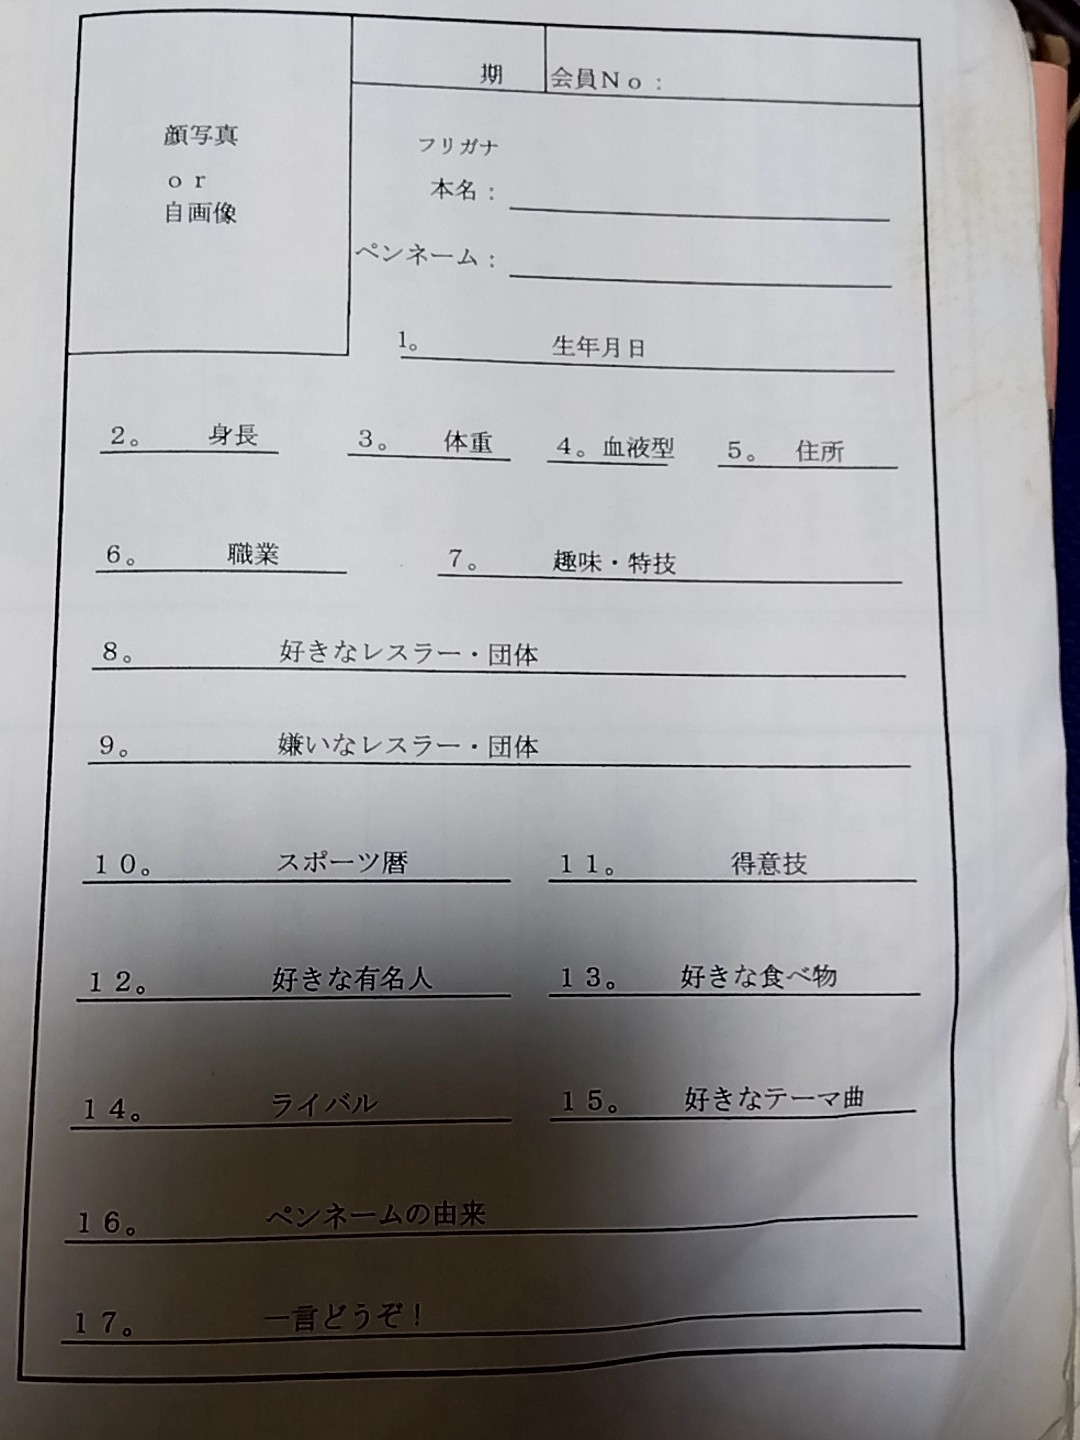 期 会員Ｎｏ：
顔写真
ｏｒ
自画像
フリガナ
本名：
ペンネーム：
１。 生年月日
２。 身長 ３。 体重 ４。血液型 ５。 住所
６。 職業 ７。 趣味・特技
８。 好きなレスラー・団体
９。 嫌いなレスラー・団体
１０。 スポーツ暦 １１。 得意技
１２。 好きな有名人 １３。 好きな食べ物
１４。 ライバル １５。 好きなテーマ曲
１６。 ペンネームの由来
１７。 一言どうぞ！